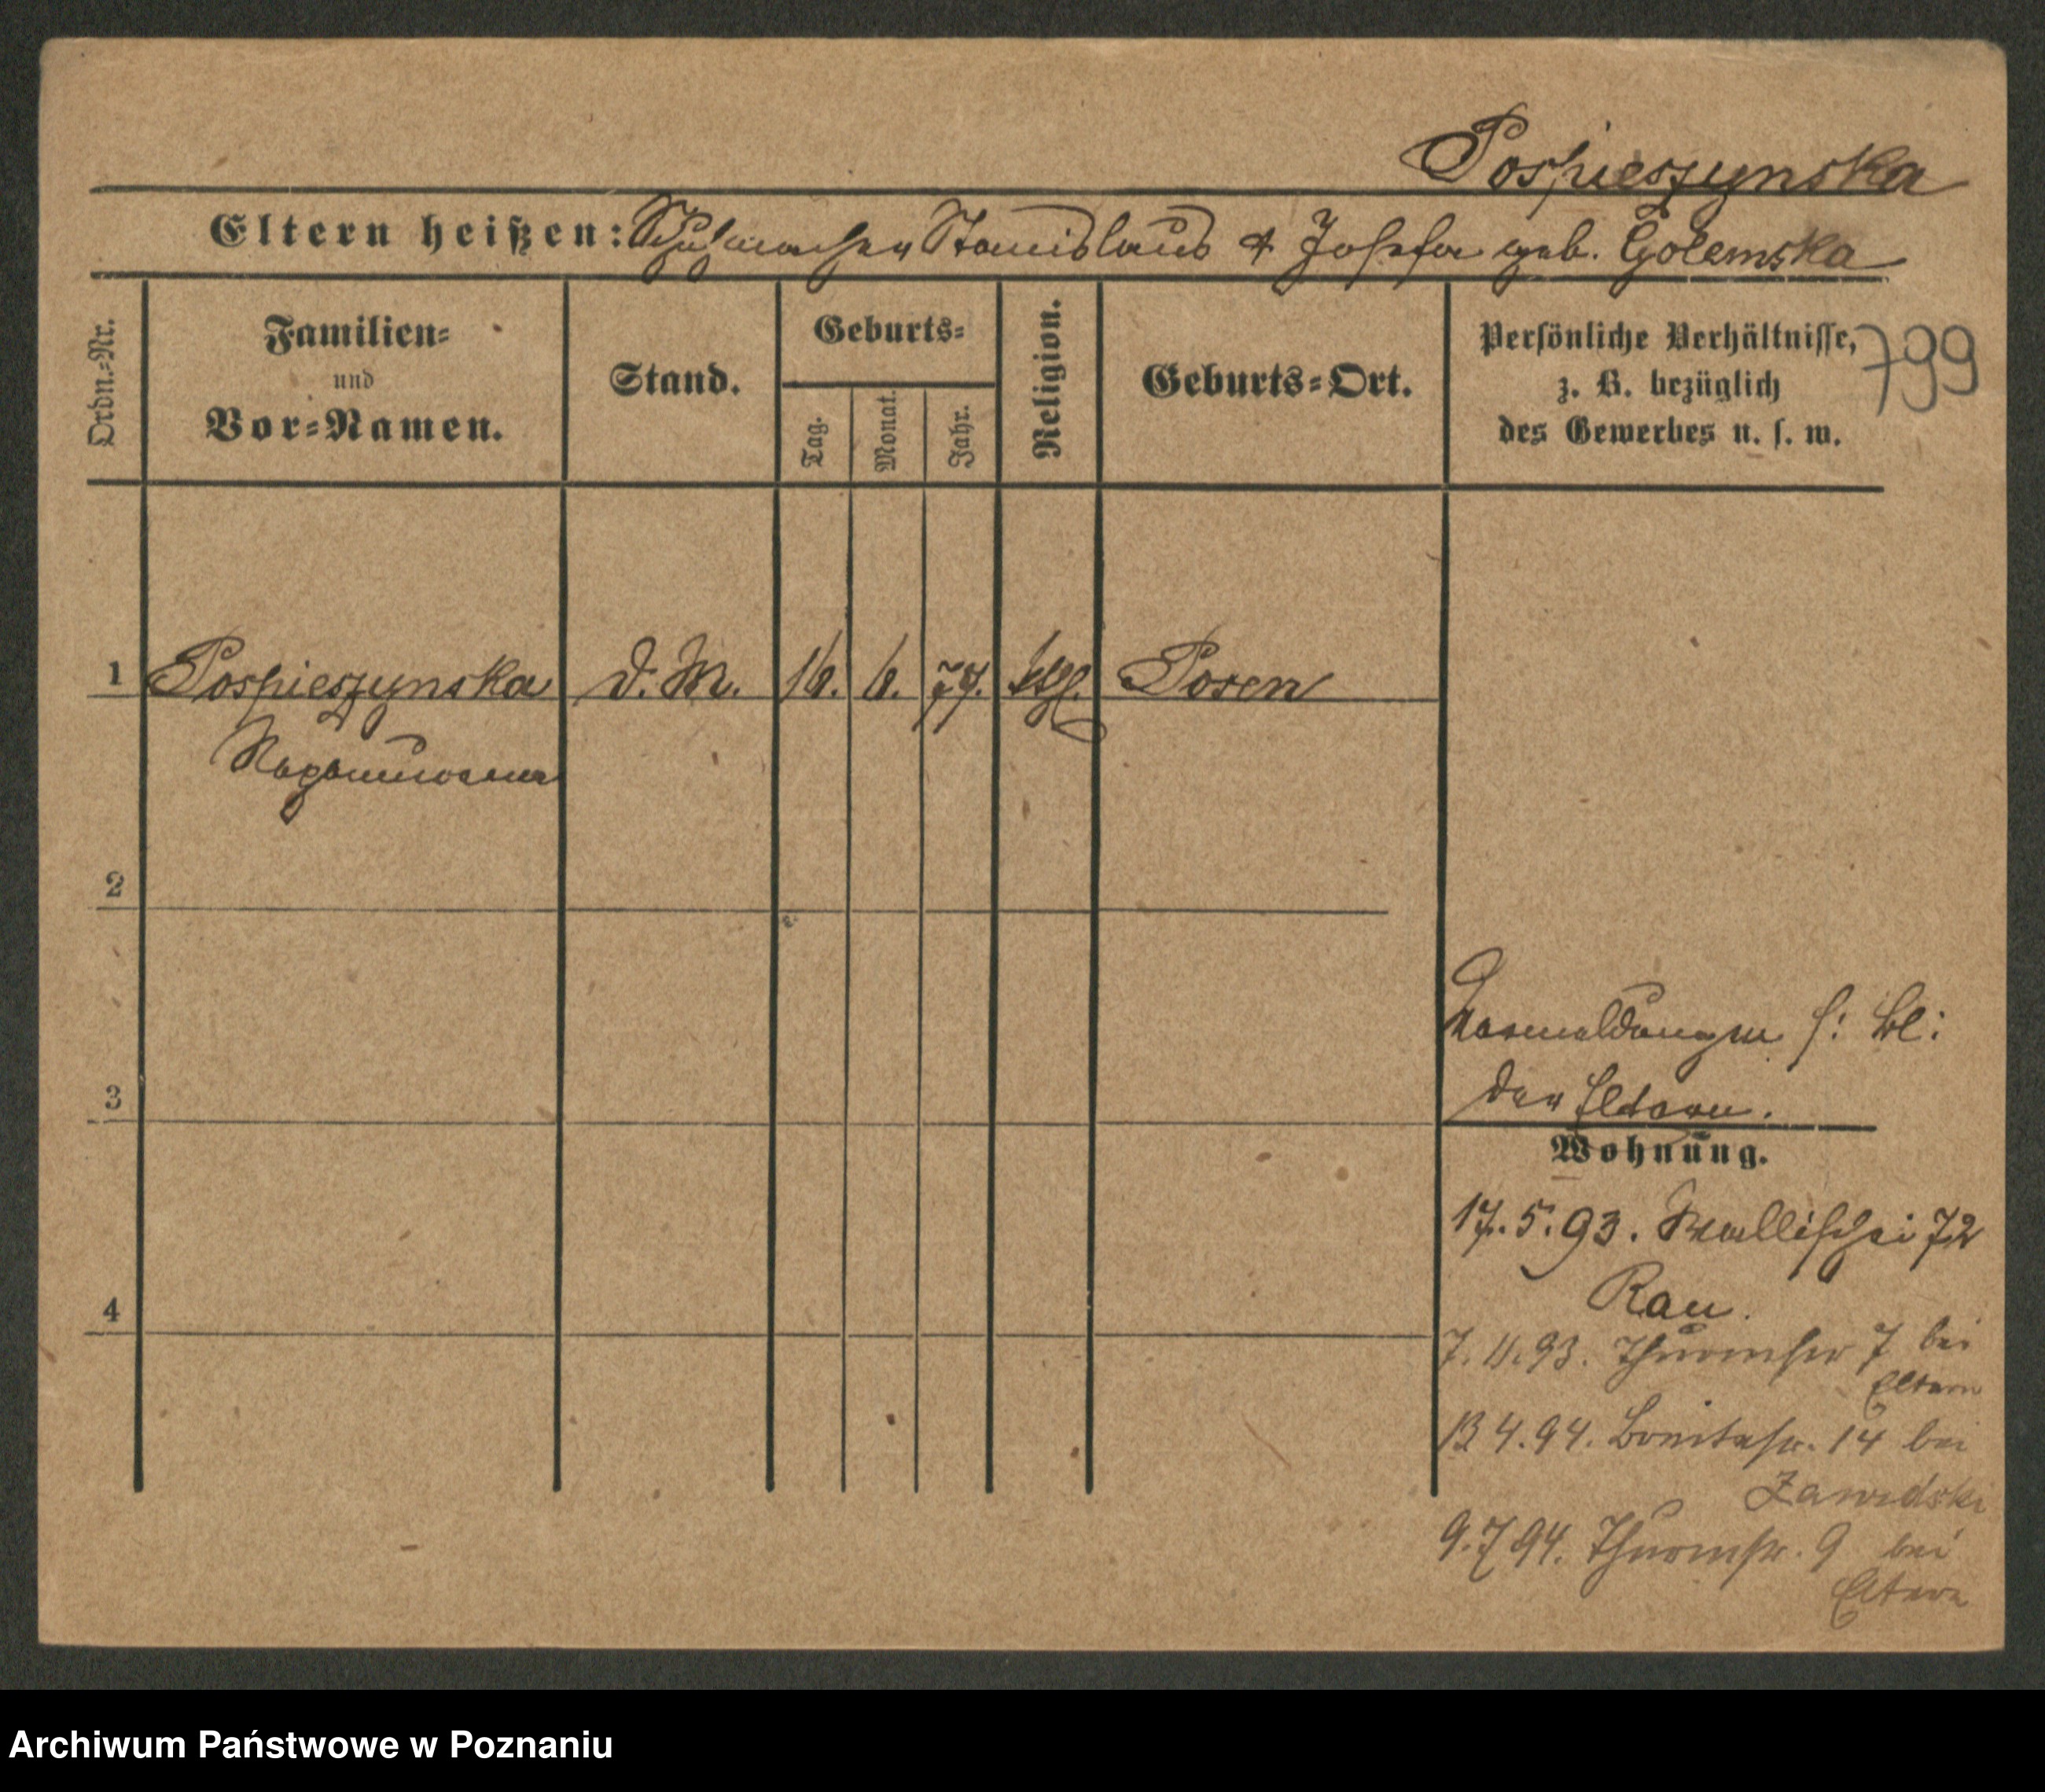 Pospieszynska
Eltern heißen: Schuhmacher Stanislaus & Josefa geb. Golemska
Ordn.-Nr.
Familien-
und
Vor-Namen.
Stand.
Geburts-
Tag.
Monat.
Jahr.
Religion.
Geburts-Ort.
Persönliche Verhältnisse,
z. B. bezüglich
des Gewerbes u. s. w.
799
1 Pospieszynska d. M. 16. 6. 77. ktl. Posen
2
3
4
Anmeldungen s: bl:
der Eltern.
Wohnung.
17. 5. 93. Wallischei 72
Rau.
7. 11. 93. Thurmstr 7 bei
Eltern
13 4. 94. Breitestr. 14 bei
Zawidski
9. 7 94. Thurmstr. 9 bei
Eltern
Archiwum Państwowe w Poznaniu